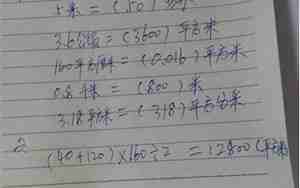 米 = (50)
3.6公顷 = (3600) 平方米
160平方厘米 = (0.016) 平方米
0.8千米 = (800) 米
3.18平方米 = (318) 平方分米
2
(40+120)×160÷2 = 12800 (平方米)